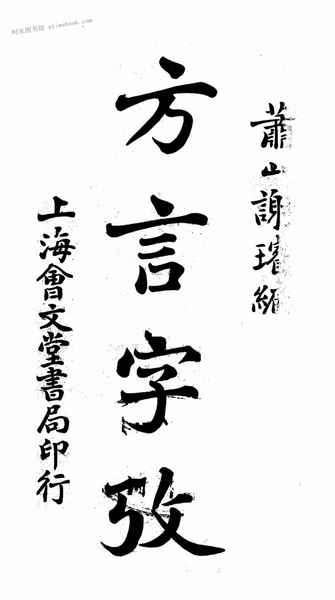 时光图书馆 etimebook.com
蕭山謝編
方言字攷
上海會文堂書局印行